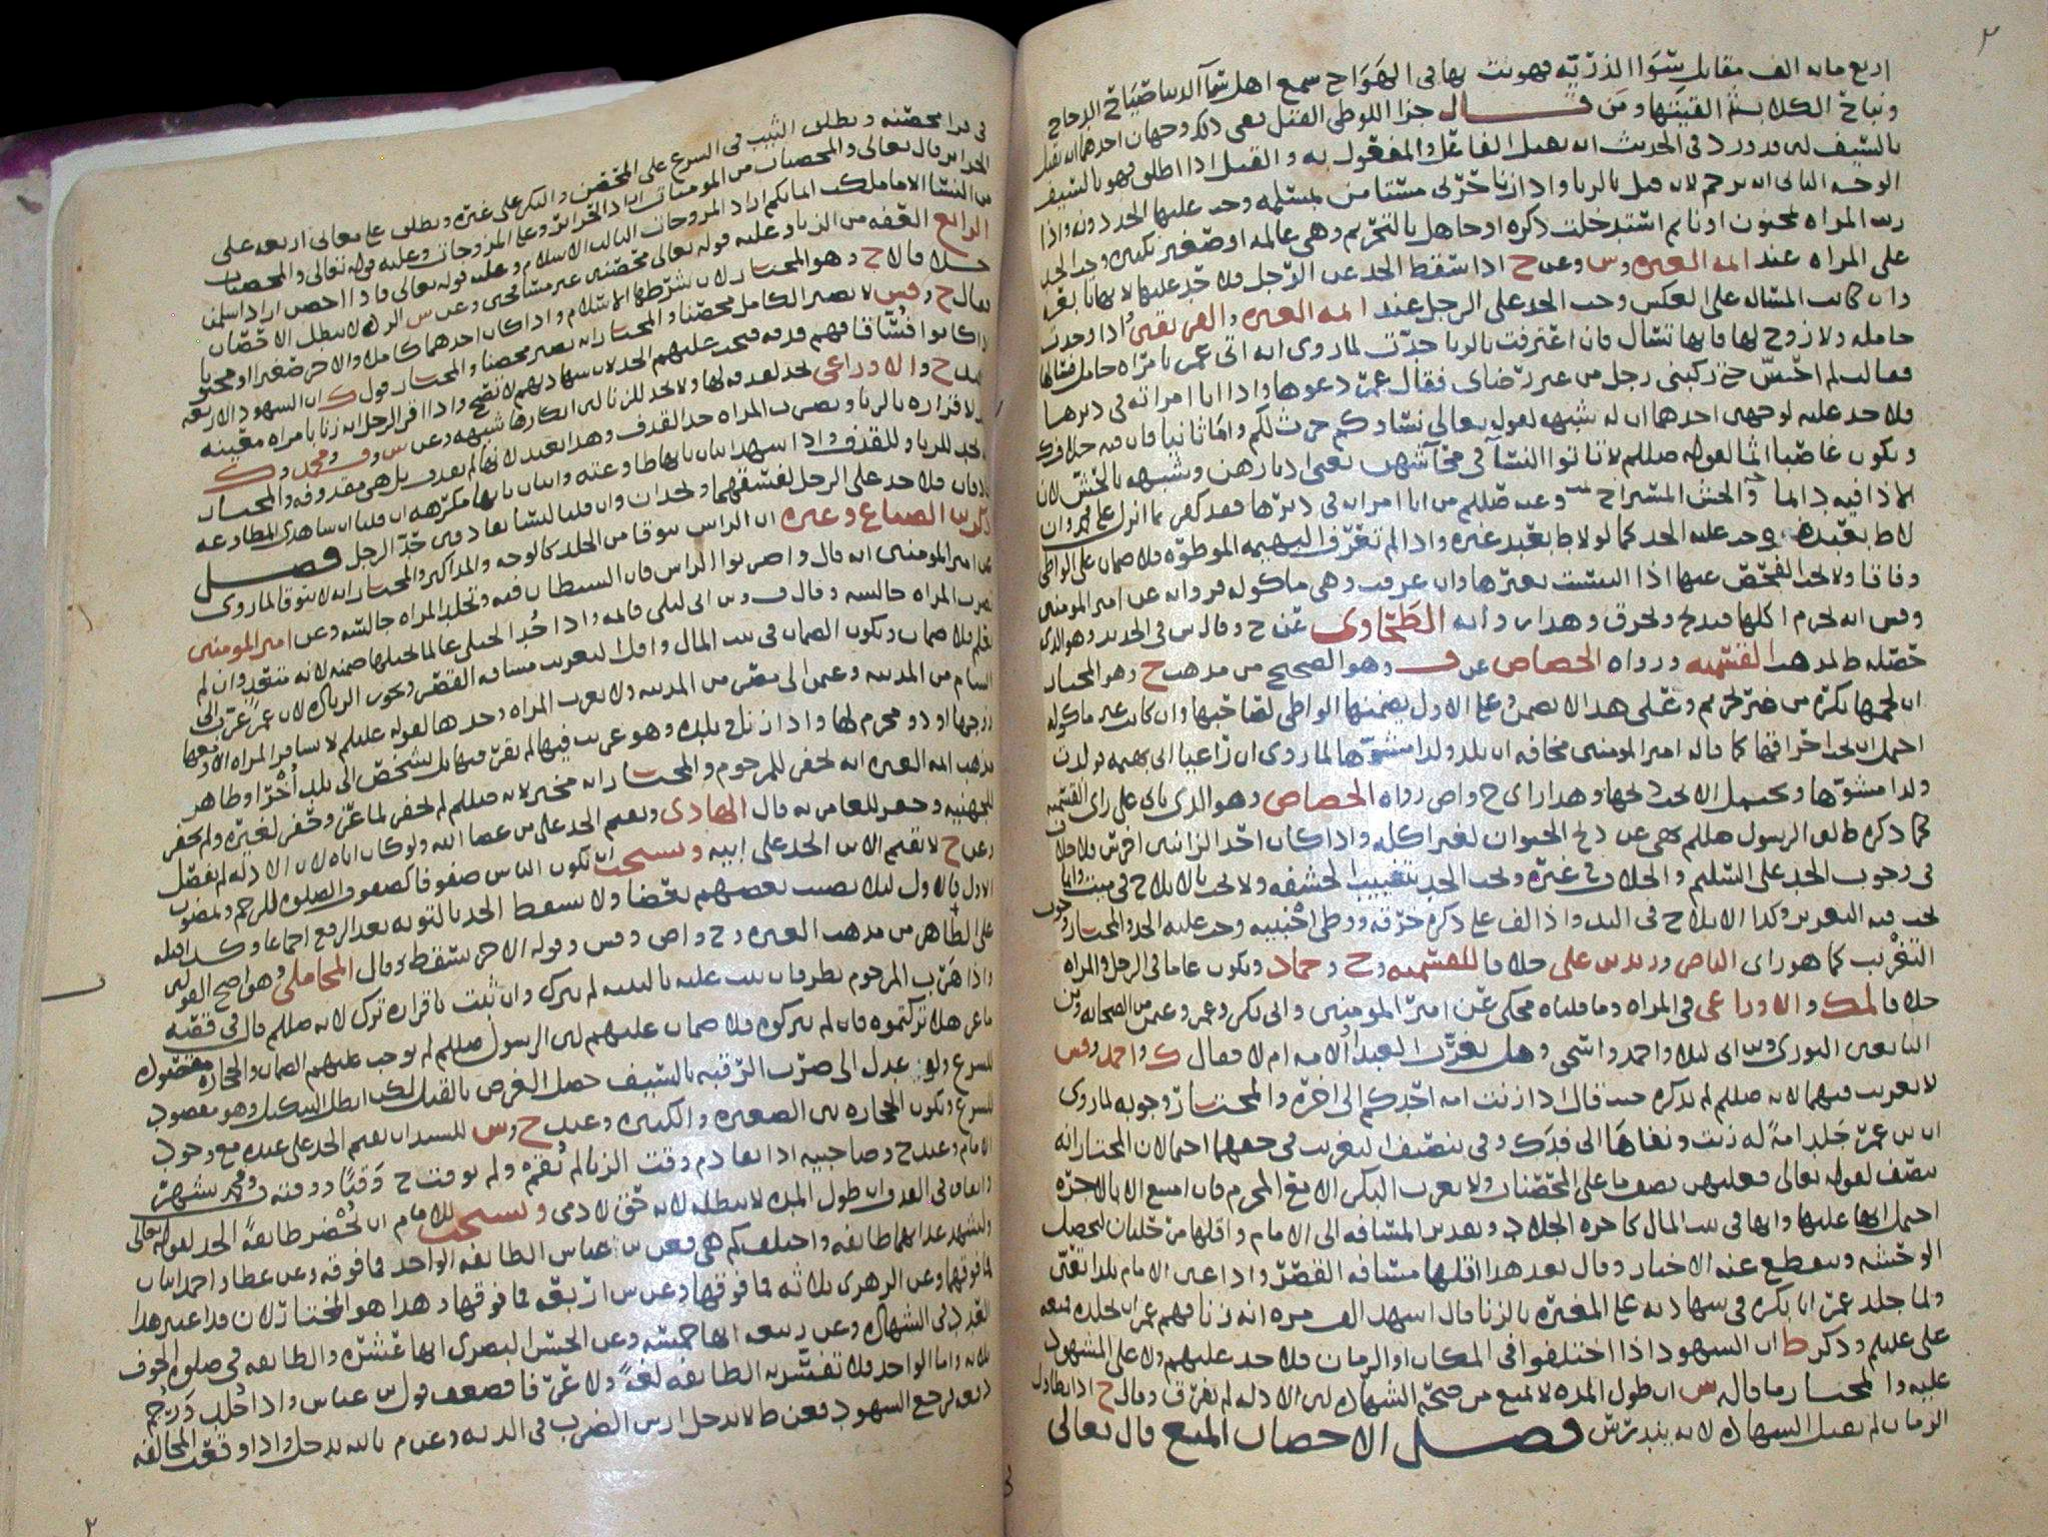 ٢
اربع مايه الف مقاتل سوا الذريه فهوت بها في الهوا ح سمع اهل سما الدنيا صياح الدجاج
ونباح الكلاب ثم القيتها ومن قال جزا اللوطي القتل ففي ذلك وجهان احدهما انه يقتل
بالسيف لن قد ورد في الحديث انه يقتل الفاعل والمفعول به والقتل اذا اطلق فهو بالسيف
الوجه الثاني انه يرجم لانه قتل بالزنا واذا زنا حربي مستامن بمسلمه وجب عليها الحد دونه واذا
زنت المراه بمجنون او نايم استدخلت ذكره او جاهل بالتحريم وهي عالمه او صغير بكبيره وجب الحد
على المراه عند ايمه العتره وس وعن ح اذا سقط الحد عن الرجل فلا حد عليها لانها تابعه
وان كانت المساله على العكس وجب الحد على الرجل عند ايمه العتره والفريقين واذا وجدت
حامله ولا زوج لها فانها تسال فان اعترفت بالزنا حدت لما روي انه اتى عمر بامراه حامل فسالها
فقالت لم احس حتى ركبني رجل من غير رضاي فقال عمر دعوها واذا اتا امراته في دبرها
فلا حد عليه لوجهين احدهما ان له شبهه لقوله تعالى نساوكم حرث لكم واما ثانيا فان فيه خلاف
ويكون عاصيا اثما لقوله صللم لا تاتوا النسآ في محآشهن يعني ادبارهن وشبهه بالحش لان
الاذا فيه دايما والحش المستراح وعنه صللم من اتا امراه في دبرها فقد كفر بما انزل على محمد وان
لاط بعبده وجب عليه الحد كما لو لاط بعبد غيره واذا لم تعرف البهيمه الموطوه فلا ضمان على الواطي
وفاقا ولا يجب الفحص عنها اذا التبست بغيرها وان عرفت وهي ماكوله فروايه عن امير المومنين
وفس انه يحرم اكلها فيذبح وتحرق وهذا روايه الطحاوي عن ح وقال س في الجديد وهو الذي
حصله ط لمذهب القسميه ورواه الجصاص عن ف وهو الصحيح من مذهب ح وهو المختار
ان لحمها يكره من غير تحريم وعلى هذا لا يضمن وعلى الاول يضمنها الواطي لصاحبها وان كانت غير ماكوله
احتمل ان يجب احراقها كما قاله امير المومنين مخافه ان تلد ولدا مشوها لما روي ان راعيا اتى بهيمه فولدت
ولدا مشوها ويحتمل الا يجب ذبحها وهذا راي ح واص رواه الجصاص وهو الذي ياتي على راي القسميه
كما ذكره ط لان الرسول صللم نهى عن ذبح الحيوان لغير اكله واذا كان احد الزانيين اخرس فلا خلاف
في وجوب الحد على السليم والخلاف في غيره ويجب الحد بتغييب الحشفه ولا يجب بالايلاج في ميت وانما
يجب فيه التعزير وكذا الايلاج في اليد واذا لف على ذكره خرقه ووطي اجنبيه وجب عليه الحد والمختار وجوب
التغريب كما هو راي الناصر وزيد بن علي خلافا للقسميه وح وحماد ويكون عاما في الرجل والمراه
خلافا لمك والاوزاعي في المراه وما قلناه محكي عن امير المومنين وابي بكر وعمر وعثمن من الصحابه ومن
التابعين الثوري وس ابن ليلا واحمد واسحق وهل يغرب العبد والامه ام لا فقال ك واحمد وقس
لا تغريب فيهما لانه صللم لم يذكره حيث قال اذا زنت امه احدكم الى اخره والمختار وجوبه لما روي
ان بن عمر جلد امةً له زنت ونفاها الى فدك وفي تنصيف التغريب في حقهما احتمالان المختار انه
ينصف لقوله تعالى فعليهن نصف ما على المحصنات ولا تغرب البكر الا مع المحرم فان امتنع الا بالاجره
احتمل انها عليها وانها في بيت المال كاجره الجلاد وتقدير المسافه الى الامام واقلها من خليان ليحصل
الوحشه وينقطع عنه الاخبار وقال بعد هذا اقلها مسافه القصر واذا عين الامام بلدا تعين
ولما جلد عمر ابا بكره في شهادته على المغيره بالزنا قال اشهد الف مره انه زنا فهم عمر ان يجلده فمنعه
علي عليلم وذكر ط ان الشهود اذا اختلفوا في المكان او الزمان فلا حد عليهم ولا على المشهود
عليه والمختار ما قاله س ان طول المده لا يمنع من صحه الشهاده لان الادله لم تفرق وقال ح اذا تطاول
الزمان لم تقبل الشهاده لانه يندرس فصل الاحصان المنع قال تعالى
في قرا محصنه ويطلق الثيب في الشرع على المحصن والبكر على غيره ويطلق على معاني اربعه على
الحراير قال تعالى والمحصنات من المومنات اراد الحراير وعلى المزوجات وعليه قوله تعالى والمحصنات
من النسا الا ما ملكت ايمانكم اراد المزوجات الثالث الاسلام وعليه قوله تعالى فاذا احصن اراد اسلمن
الرابع العفه من الزنا وعليه قوله تعالى محصنين غير مسافحين وعن س الرده لا تبطل الاحصان
خلافا لاح وهو المختار لان شرطها الاسلام واذا كان احدهما كاملا والاخر صغيرا او مجنونا
فقال ح وقس لا يصير الكامل محصنا والمختار انه يصير محصنا والمختار قول ك ان الشهود الاربعه
اذا كانوا فساقا فهم قذفه فيجب عليهم الحد لان شهادتهم لا تصح واذا اقر الرجل انه زنا بامراه معينه
عند ح والاوزاعي يحد لقذفه لها ولا يحد للزنا لان انكارها شبهه وعن س وف ومحمد وك
لاقراره بالزنا ويضرب المراه حد القذف وهذا بعيد لانها لم تقذف بل هي مقذوفه والمختار
يحد للزنا وللقذف واذا شهد اثنان بانها طاوعته واثنان بانها مكرهه ان قلنا ان شاهدي المطاوعه
قاذفان فلا حد على الرجل لفسقهما ويحدان وان قلنا ليسا بقاذفين حد الرجل فصل
ذكر بن الصباغ وغيره ان الراس يتوقا من الجلد كالوجه والمذاكير والمختار انه لا يتوقا لما روي
عن امير المومنين انه قال واضربوا الراس فان الشيطان فيه وتجلد المراه جالسه وعن امير المومنين
تضرب المراه جالسه وقال ف وبن ابي ليلى قايمه واذا حُد الحبلى عالما بحبلها ضمنه لانه متعدٍ وان لم
يعلم فلا ضمان ويكون الضمان في بيت المال واقل التغريب مسافه القصر ويجوز الزياده لان عمر غرب الى
الشام من المدينه وعثمن الى مصر من المدينه ولا تغرب المراه وحدها لقوله عليلم لا تسافر المراه الا ومعها
زوجها او ذو محرم لها واذا زنا في بلده وهو غريب فيها لم يقر فيها بل يشخص الى بلد اُخرا وظاهر
مذهب ايمه العتره انه يحفر للمرجوم والمختار انه مخير لانه صللم لم يحفر لماعز وحفر لغيره ولم يحفر
للجهنيه وحفر للعامريه قال الهادي ويقيم الحد على من عصا الله ولو كان اباه لان الادله لم تفصل
وعن ح لا يقيم الابن الحد على ابيه ويستحب ان تكون الناس صفوفا كصفوف الصلوه للرجم ولمضروب
الاول فالاول ليلا يصيب بعضهم بعضا ولا يسقط الحد بالتوبه بعد الرفع اجماعا وكذا قبله
على الظاهر من مذهب العتره وح واص وقس وقوله الاخر يسقط وقال المحاملي وهو اصح القولين
واذا هرب المرجوم نظر فان ثبت عليه بالبينه لم يترك وان ثبت باقراره ترك لانه صللم قال في قصه
ماعز هلا تركتموه فان لم يتركوه فلا ضمان عليهم لان الرسول صللم لم يوجب عليهم الضمان والحجاره مقصوده
للشرع ولو عدل الى ضرب الرقبه بالسيف حصل الغرض بالقتل لكن ابطل التنكيل وهو مقصود
للشرع وتكون الحجاره بين الصغيره والكبيره وعند ح وس للسيد ان يقيم الحد على عبده مع وجود
الامام وعند ح وصاحبيه اذا تقادم وقت الزنا لم نُقمه ولم يوقت ح وقتا ووقته ف ومحمد بشهر
واتفاق في القذف ان طول المده لا يبطله لانه حق لادمي ويستحب للامام ان يُحضر طايفةً الحد لقوله تعالى
وليشهد عذابهما طايفه واختلف كم هي فعن بن عباس الطايفه الواحد فما فوقه وعن عطا واحمد اثنان
فما فوقهما وعن الزهري ثلاثه فما فوقها وعن س اربعه فما فوقها وهذا هو المختار لان قد اعتبر هذا
العدد في الشهاده وعن ربيعه انها خمسه وعن الحسن البصري انها عشره والطايفه في صلوه الخوف
ثلاثه واما الواحد فلا تفسر به الطايفه لغةً ولا عرفا فضعف قول بن عباس واذا جُلد ورجم
ثم رجع الشهود فعن ط لا يدخل ارش الضرب في الديه وعن م بالله يدخل واذا وقعت المخالفه
٢